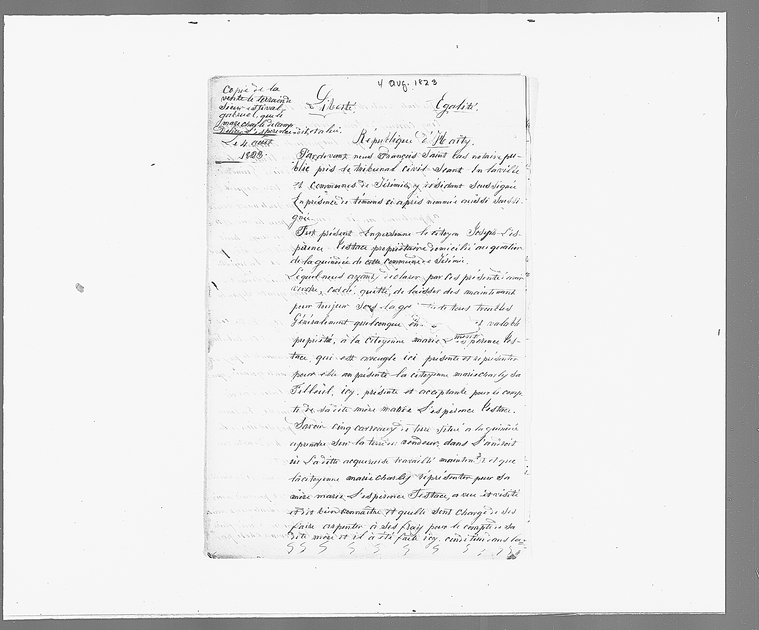 4 Aug. 1823
Copie de la
vente de terrain de
Sieur estival
gabriel, que de
marie charly
Le 4 août
1823.
Liberté Egalité.
République d'Hayti.
Pardevant nous François Saint Cas notaire pu-
blic près le tribunal civil séant en la ville
et Communes de Jérémie, y résidant Soussigné
En présence de témoins ci après nommés aussi Soussi-
gné.
Fut présent En personne le citoyen Joseph L'es-
pérence Festace propriétaire domicilié au quartier
de la guinodé de cette commune de Jérémie.
Lequel nous ayant déclaré par ces présente avoir
vendu, cédé, quitté, de laisser dès maintenant
pour toujour Sous la ga de tous troubles
Généralement quelconque En valable
propriété, à la citoyenne marie L'espérence Fes-
tace, qui est aveugle ici présente et représenter
pour elle au présente la citoyenne marie charly Sa
filleul, icy présente et acceptante pour le comp-
te de sa dite mère marie L'espérence Festace.
Savoir cinq carreaux de terre Situé a la guinodé
a prendre Sur la terre du vendeur, dans L'endroit
où La dite acquereuse travaille maintent. et que
la citoyenne marie charly représenter pour Sa
mère marie L'espérence Festace, a vue et visité
et dit bien connaitre et quelle Sont chargé de les
faire arpenter à Ses frais pour le compte de Sa
dite mère et il a été fait icy